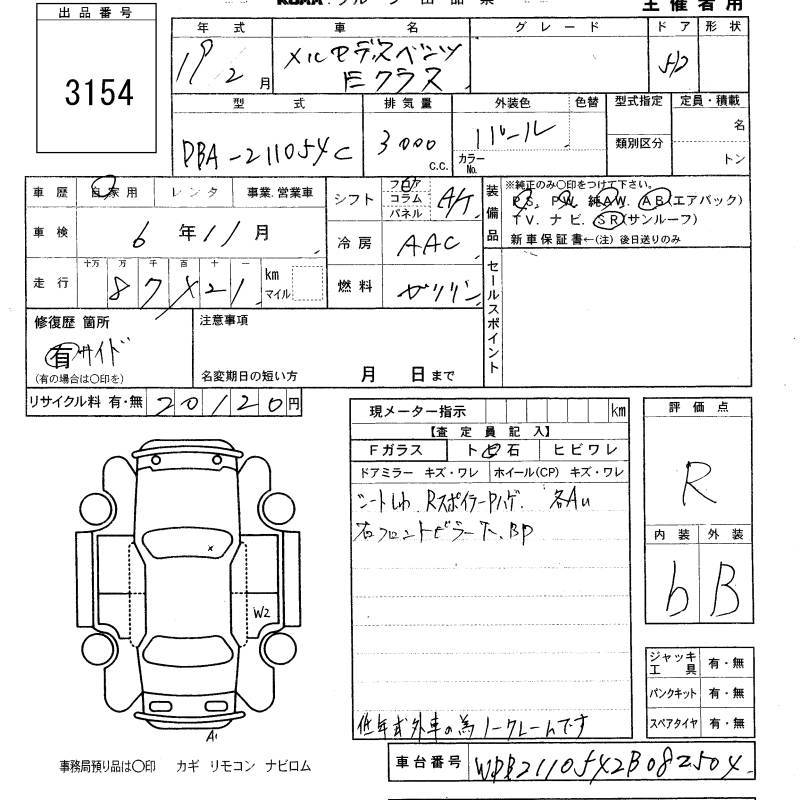 出品番号
3154
主催者用
年式 車名 グレード ドア 形状
19 2月 メルセデスベンツ 5D
Eクラス
型式 排気量 外装色 色替 型式指定 定員・積載
DBA-211054C 3000 c.c. パール カラーNo. 類別区分 名
トン
車歴 自家用 レンタ 事業.営業車
車検 6年11月
走行 十万 万 千 百 十 一 km マイル
8 7 × 2 1
シフト フロア コラム パネル A/T
冷房 AAC
燃料 ガソリン
装備品
※純正のみ〇印をつけて下さい。
P.S. P.W. 純A.W. A.B(エアバック)
T.V. ナビ. S.R(サンルーフ)
新車保証書←(注) 後日送りのみ
セールスポイント
修復歴 箇所
有 サイド
(有の場合は〇印を)
注意事項
名変期日の短い方 月 日まで
リサイクル料 有・無 20120円
現メーター指示 km
【査定員記入】
Fガラス トビ石 ヒビワレ
ドアミラー キズ・ワレ ホイール(CP) キズ・ワレ
シートしわ Rスポイラーハゲ. 各AU
右フロントピラー BP
低年式外車の為ノークレームです
評価点
R
内装 外装
b B
ジャッキ工具 有・無
パンクキット 有・無
スペアタイヤ 有・無
W2
A1
事務局預り品は〇印 カギ リモコン ナビロム
車台番号 WDB2110542B082504